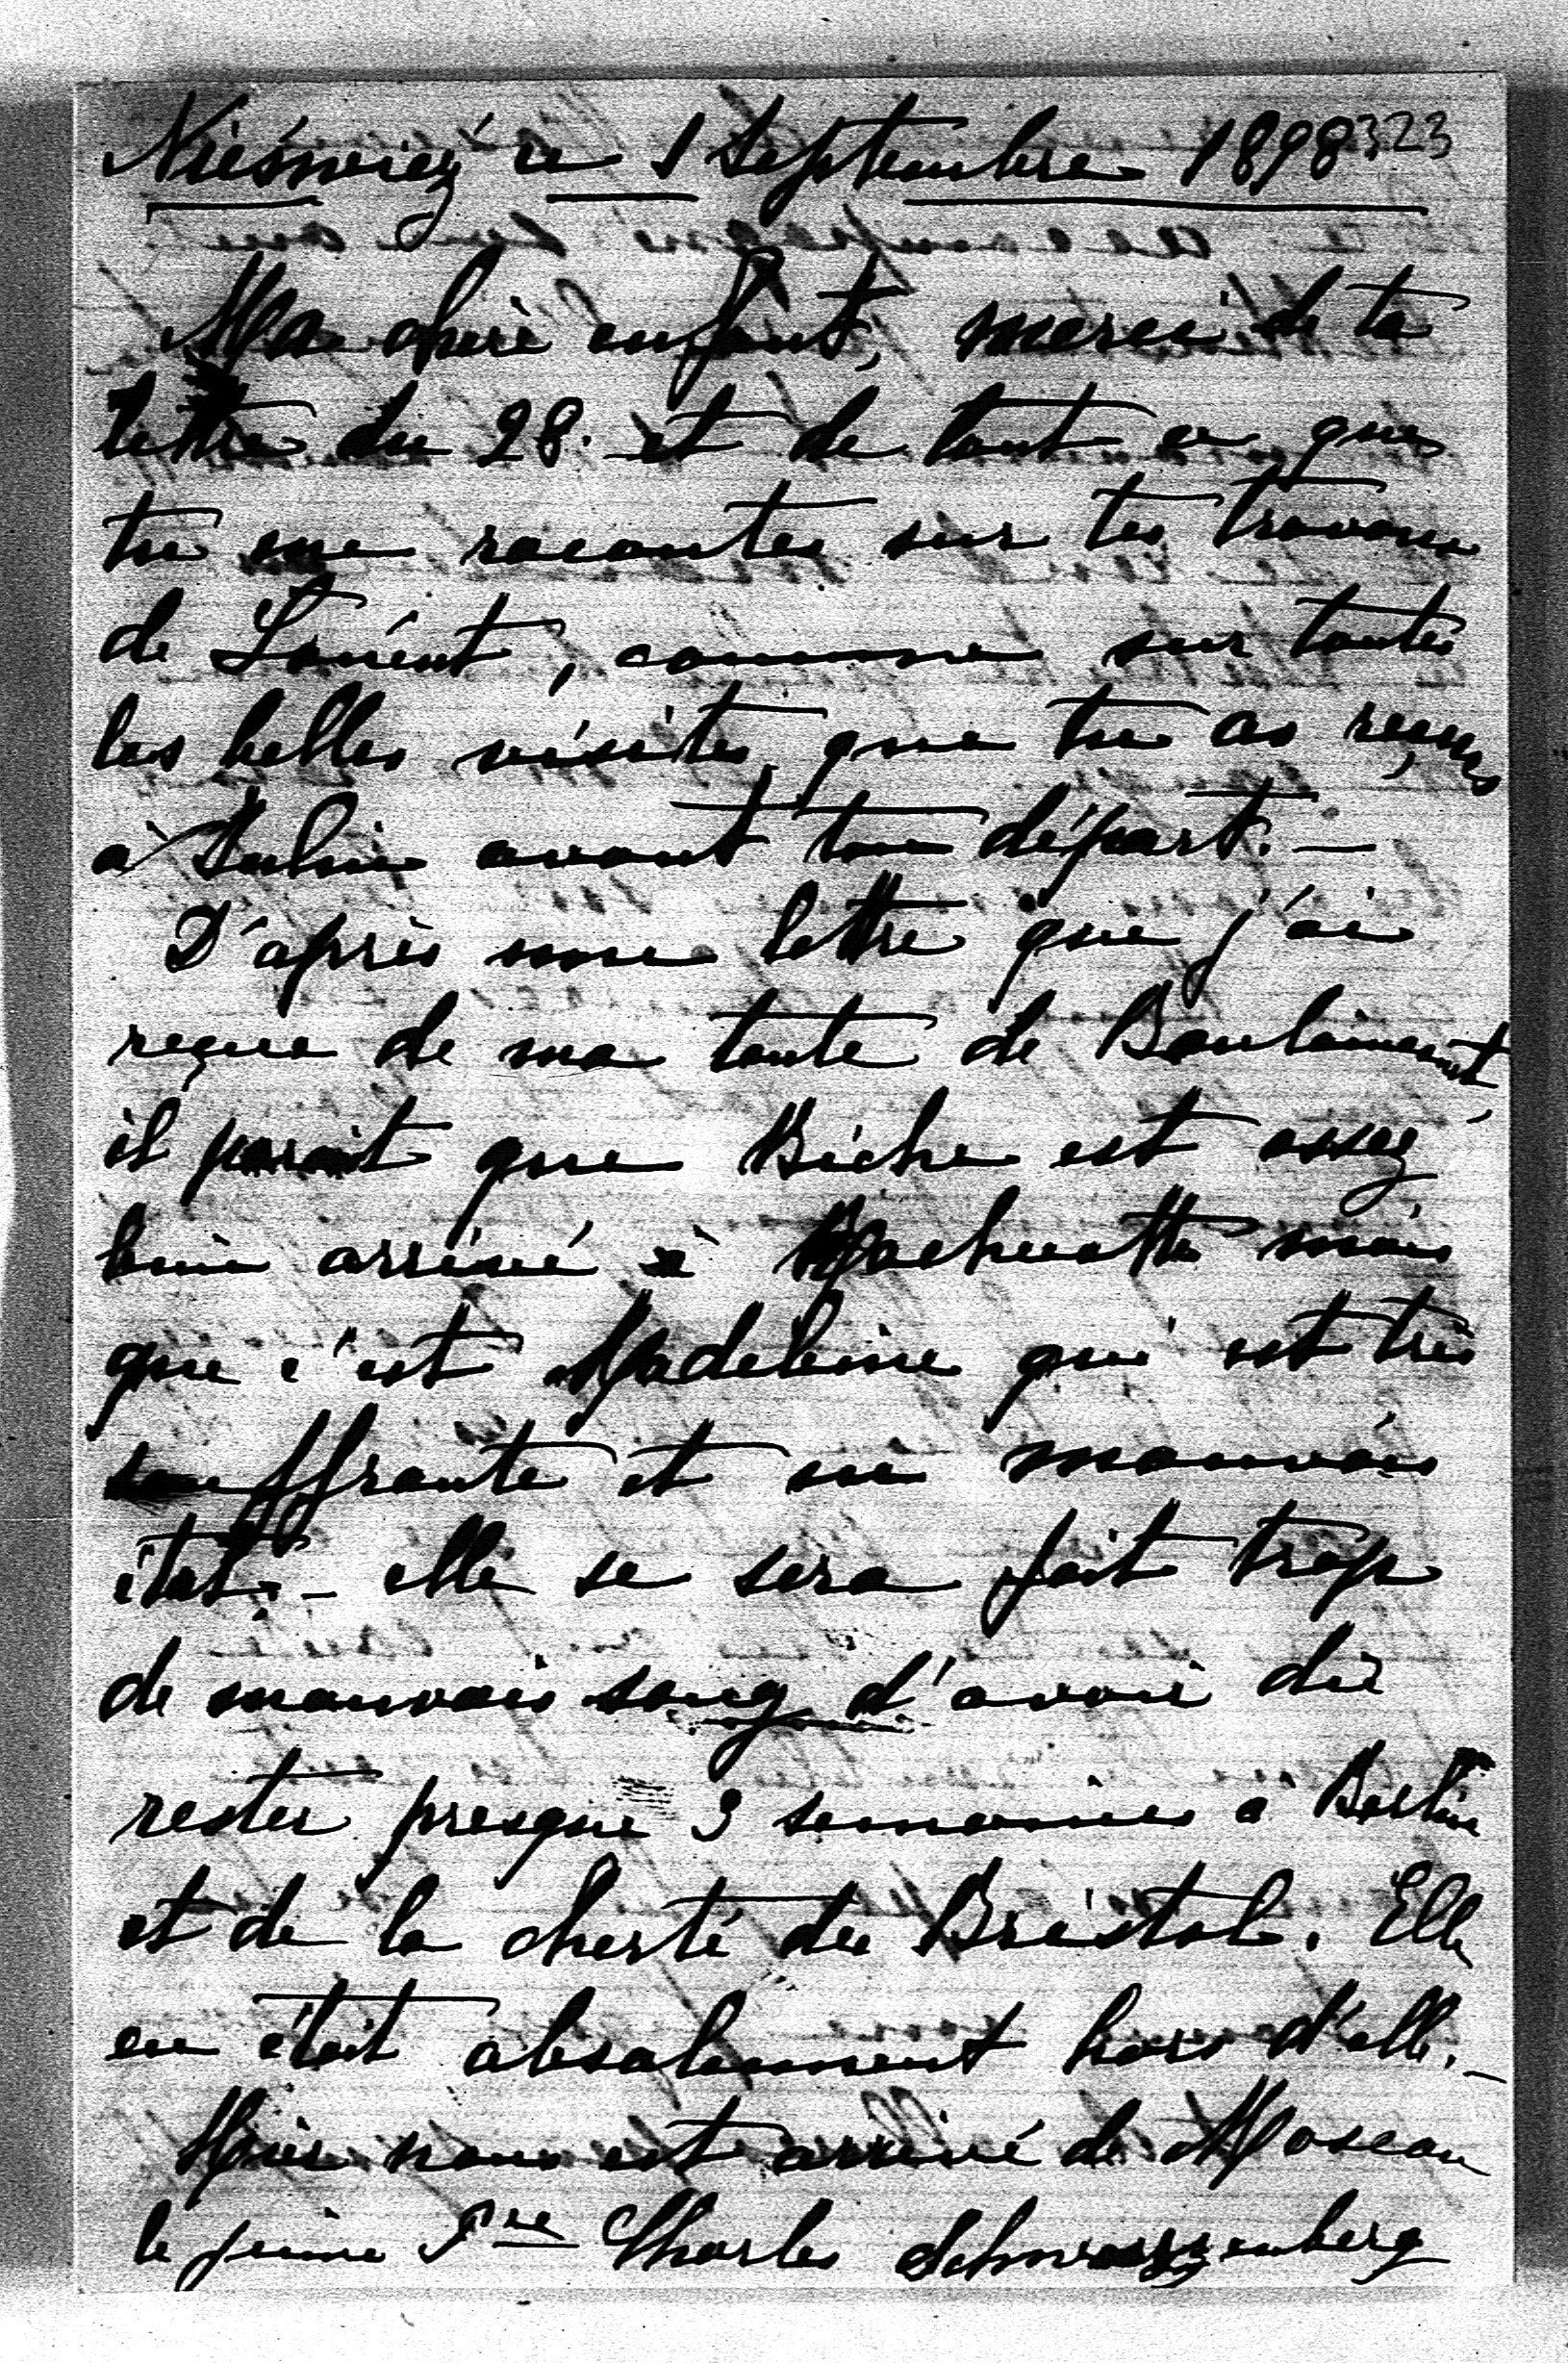 Nieśwież ce 1 Septembre 1898 323
Ma chère enfant, merci de ta
lettre du 28. et de tout ce que
tu me racontes sur tes travaux
de , comme sur toutes
les belles visites que tu as reçues
à avant ton départ. —
D'après une lettre que j'ai
reçue de ma tante de
il parait que Biche est assez
bien arrivé à mais
que c'est Madeleine qui est très
souffrante et en mauvais
état. – elle se sera fait trop
de mauvais sang d'avoir dû
rester presque 3 semaines à Berlin
et de la cherté du Bristol. Elle
en était absolument hors d'elle. –
Hier nous est arrivé de Moscou
le jeune Pce Charles Schwarzenberg